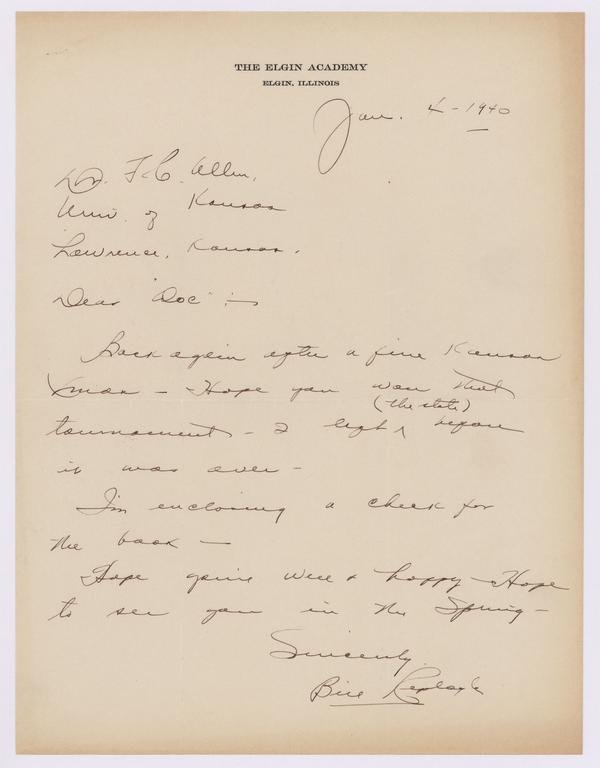 THE ELGIN ACADEMY
ELGIN, ILLINOIS
Jan. 4 - 1940
Dr. F. C. Allen,
Univ. of Kansas
Lawrence, Kansas.
Dear "Doc" :-
Back again after a fine Kansas
Xmas - Hope you won that
(the state)
tournament - I left ^ before
it was over -
I'm enclosing a check for
the book -
Hope you're well & happy - Hope
to see you in the Spring -
Sincerely,
Bill